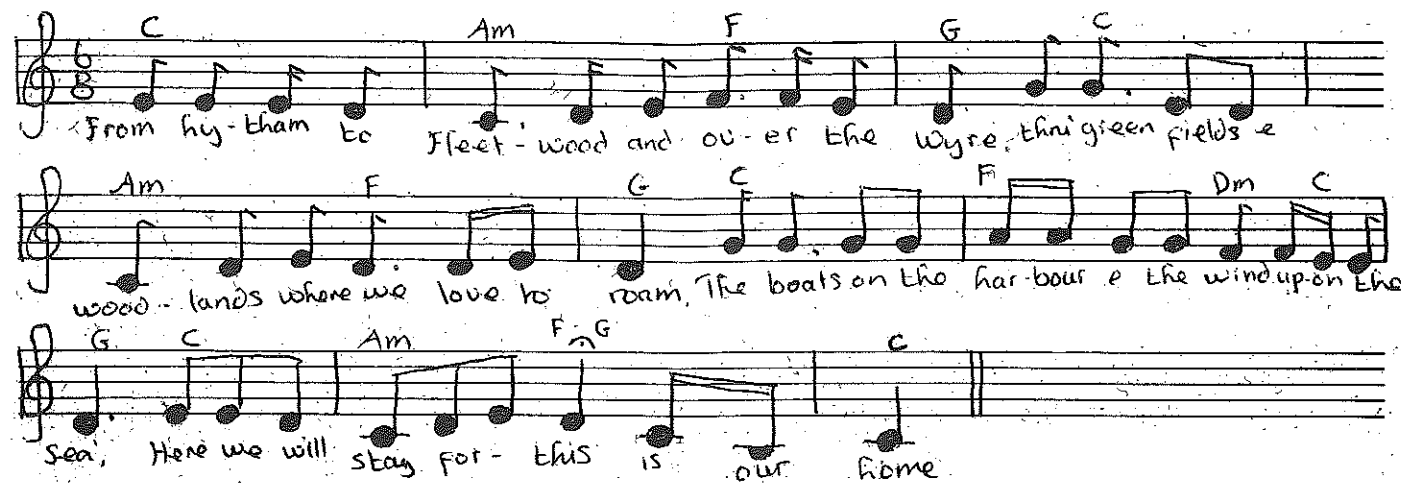 C Am F G C
6
8
From hy-tham to Fleet-wood and ov-er the Wyre, thru' green fields e
Am F G C F Dm C
wood-lands where we love to roam, The boats on the har-bour e the wind up-on the
G C Am F G C
Sea, Here we will stay for- this is our home